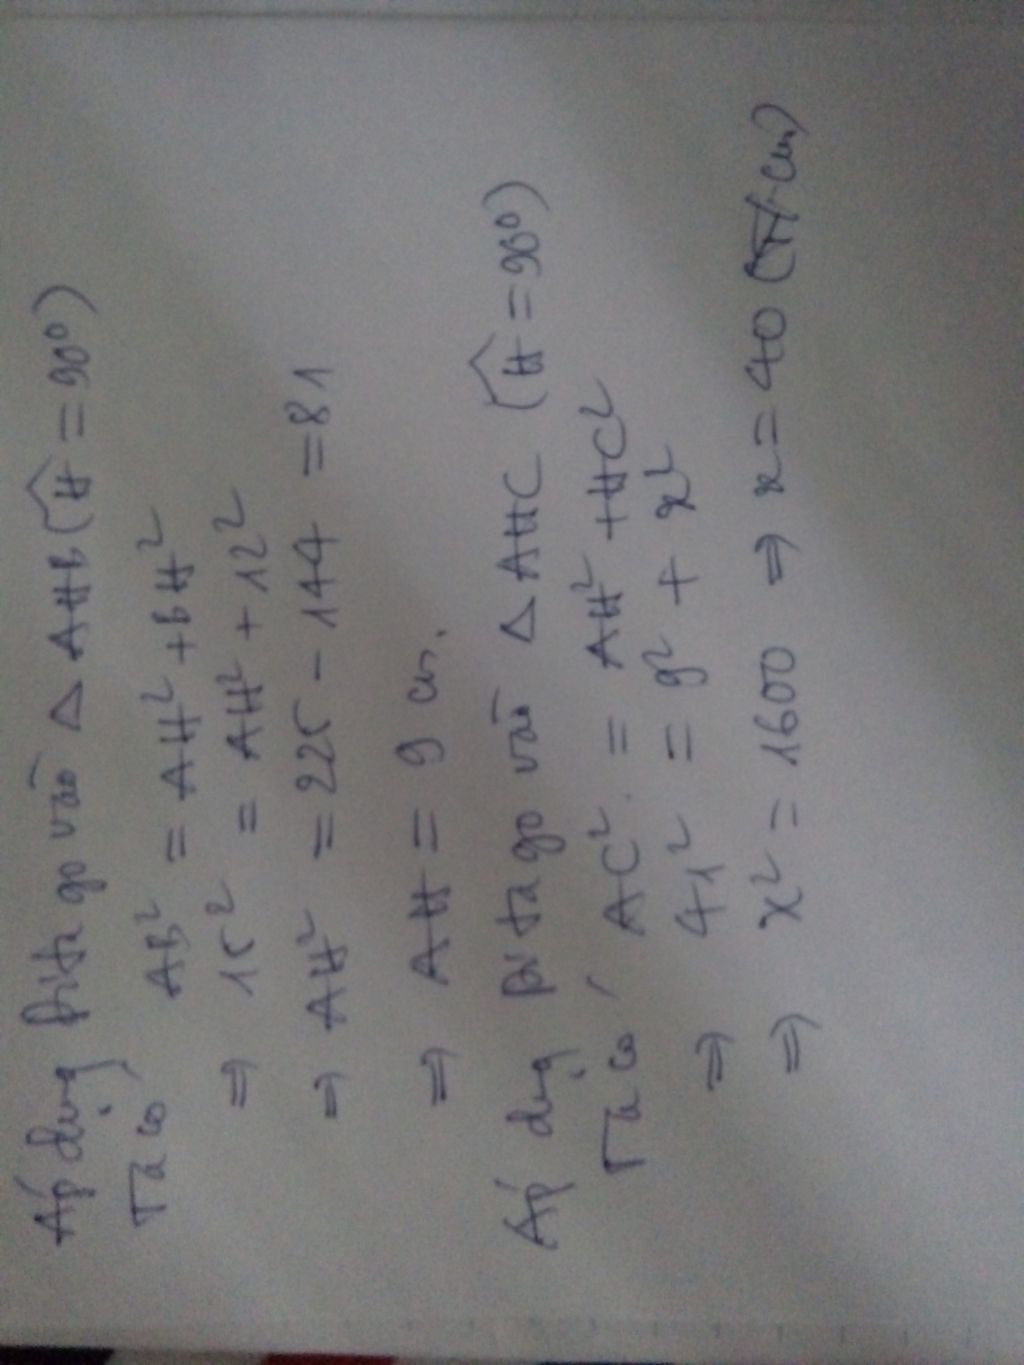 Áp dụng pita go vào Δ AHB (Ĥ = 90⁰)
Ta có AB² = AH² + BH²
⇒ 15² = AH² + 12²
⇒ AH² = 225 - 144 = 81
⇒ AH = 9 cm.
Áp dụng pi ta go vào Δ AHC (Ĥ = 90⁰)
Ta có, AC² = AH² + HC²
⇒ 41² = 9² + x²
⇒ x² = 1600 ⇒ x = 40 (cm)